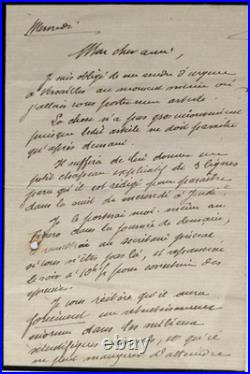 Mercredi
Mon cher ami,
Je suis obligé de me rendre d'urgence
à Versailles au moment même où
j'allais vous porter mon article.
La chose n'a pas grand inconvénient
puisque ledit article ne doit paraître
qu'après demain.
Il suffira de lui donner un
petit chapeau explicatif de 3 lignes
pour qu'il est rédigé pour paraître
dans la nuit de mercredi à Jeudi
Je le porterai moi-même au
dans la journée de demain,
au secrétaire général
si vous n'êtes pas là, et repasserai
le soir à 10h½ pour corriger des
épreuves.
Je vous répète qu'il aura
forcément un retentissement
énorme dans les milieux
scientifiques et qui ce
ne plus manquera d'atteindre